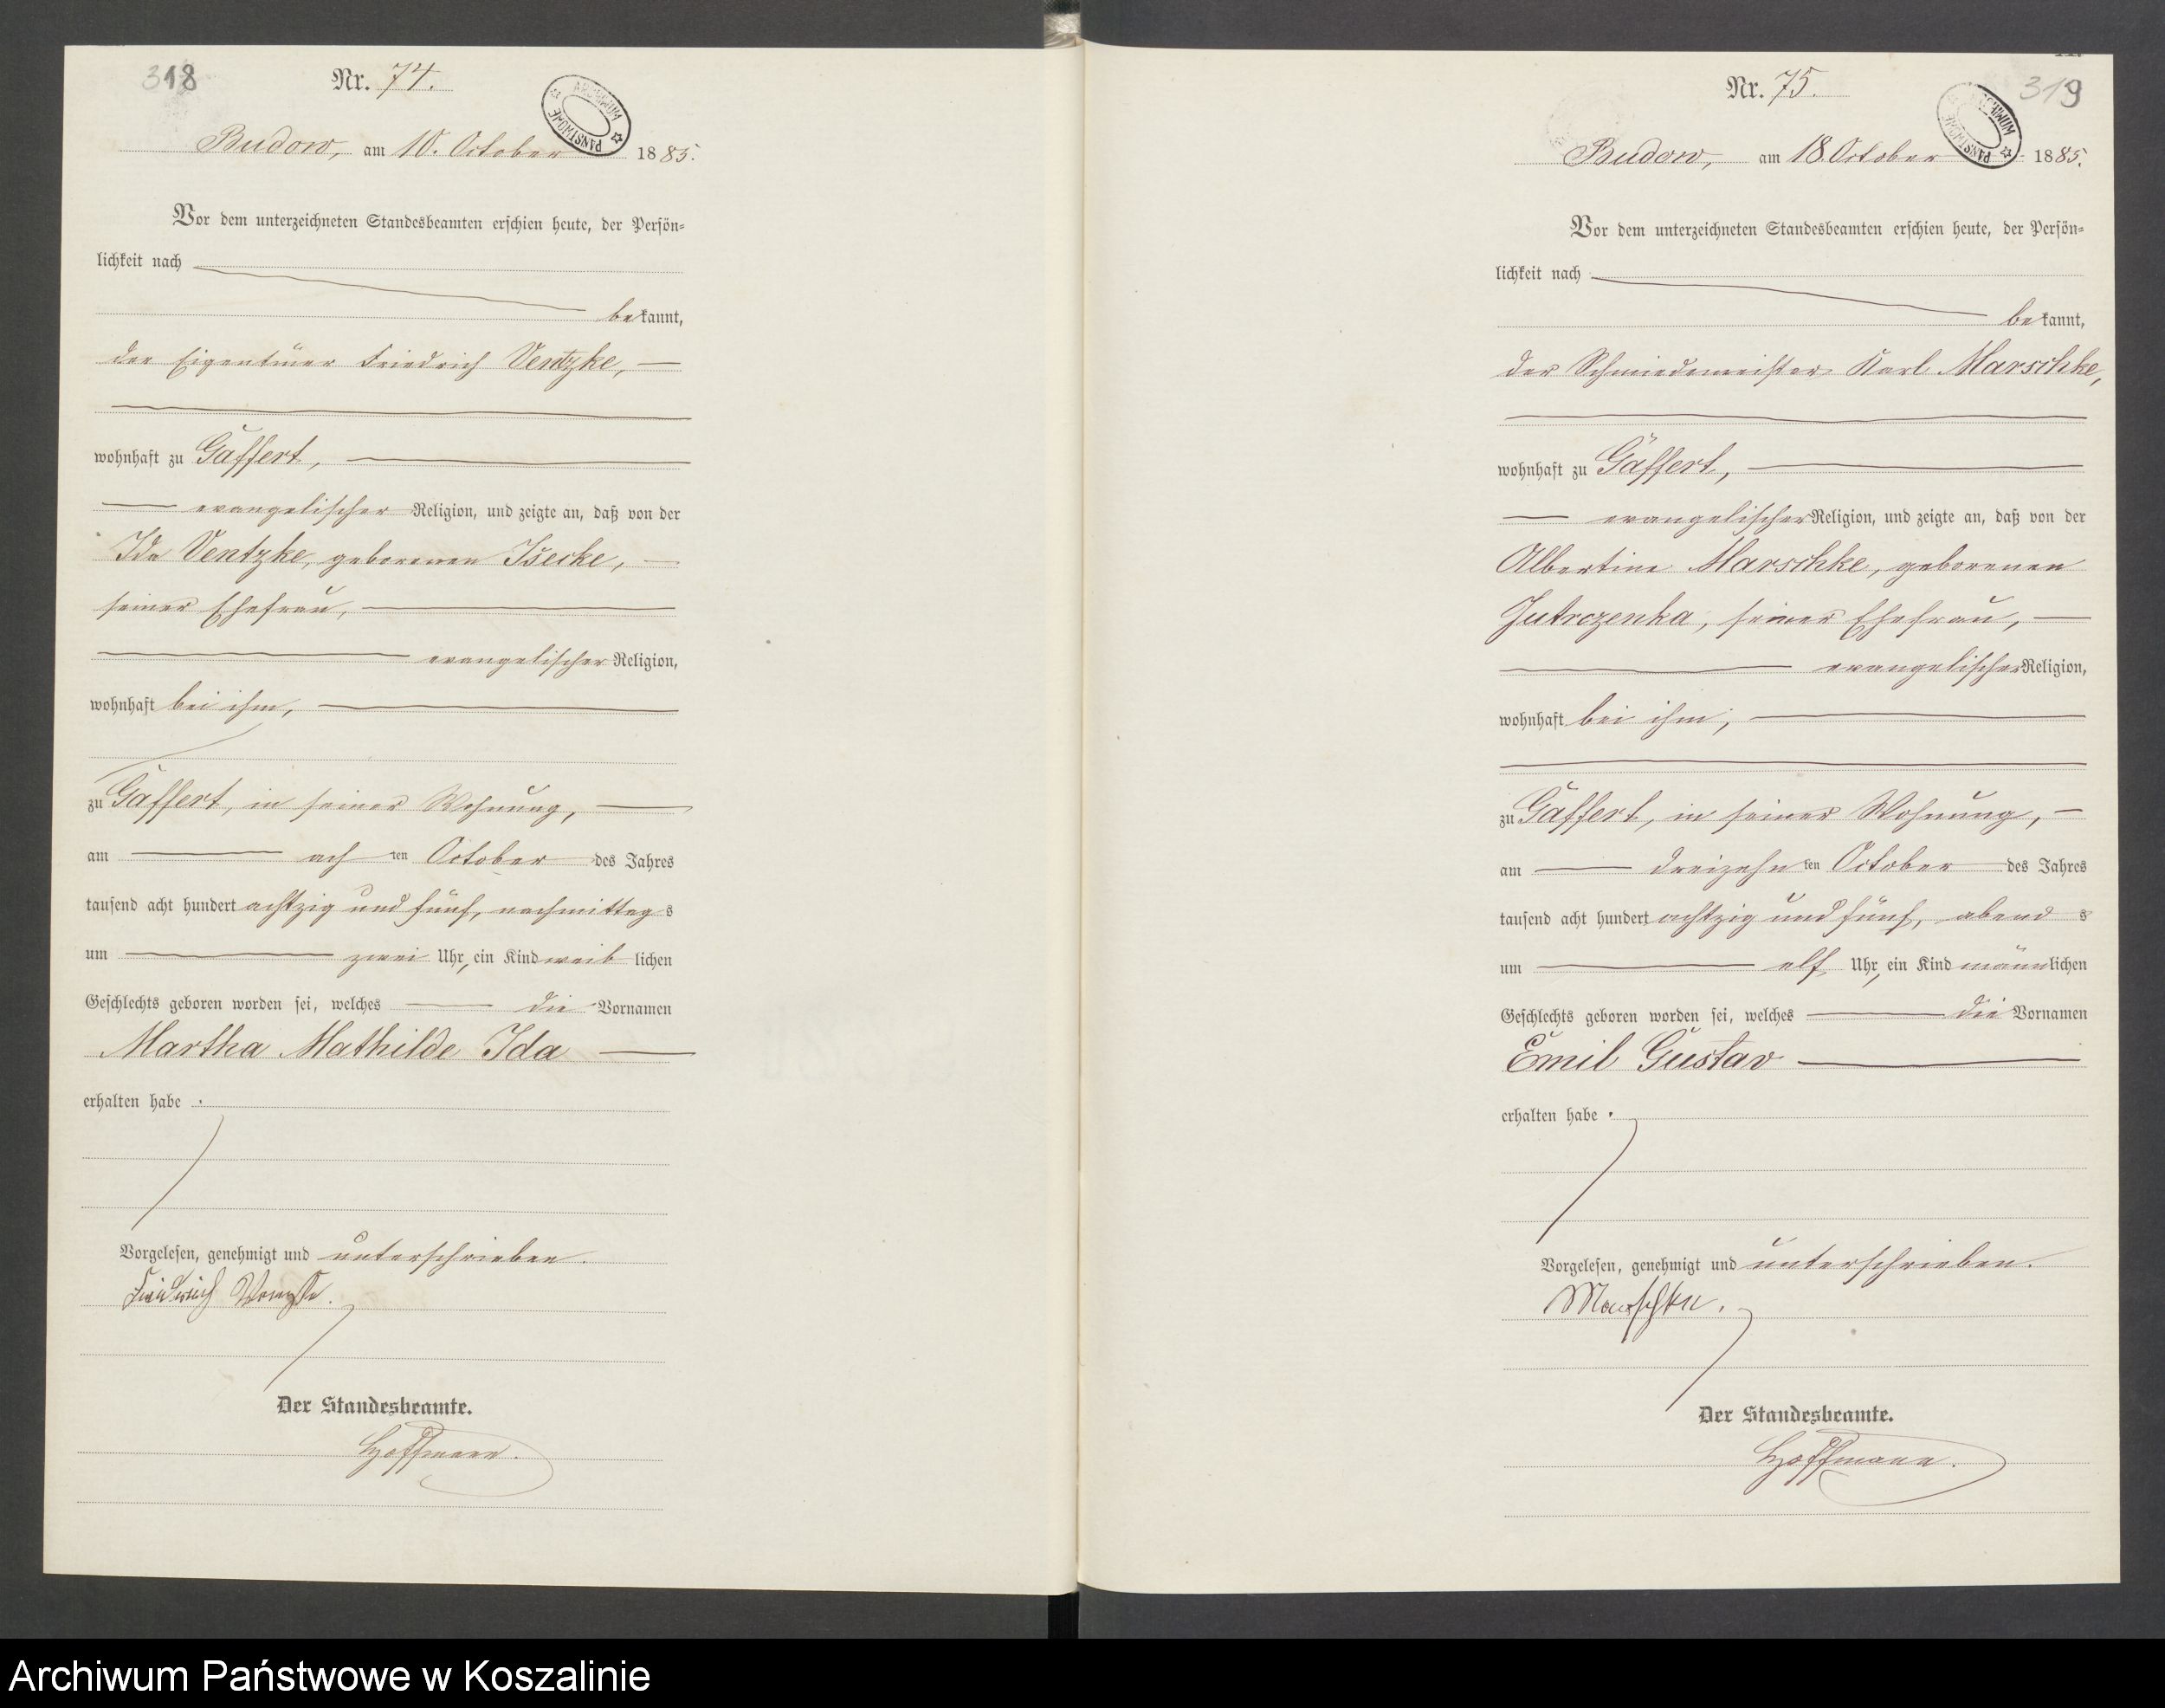 318
Nr. 74.
ARCHIWUM PAŃSTWOWE
Budow, am 10. October 1885.
Vor dem unterzeichneten Standesbeamten erschien heute, der Persön=
lichkeit nach
bekannt,
der Eigentümer Friedrich Ventzke,
wohnhaft zu Gaffert,
evangelischer Religion, und zeigte an, daß von der
Ida Ventzke, geborenen Isecke,
seiner Ehefrau,
evangelischer Religion,
wohnhaft bei ihm,
zu Gaffert, in seiner Wohnung,
am achten October des Jahres
tausend acht hundert achtzig und fünf, nachmittags
um zwei Uhr, ein Kind weiblichen
Geschlechts geboren worden sei, welches die Vornamen
Martha Mathilde Ida
erhalten habe.
Vorgelesen, genehmigt und unterschrieben.
Friedrich Ventzke.
Der Standesbeamte.
Hoffmann.
319
Nr. 75.
ARCHIWUM PAŃSTWOWE
Budow, am 18. October 1885.
Vor dem unterzeichneten Standesbeamten erschien heute, der Persön=
lichkeit nach
bekannt,
der Schmiedemeister Karl Marschke,
wohnhaft zu Gäffert,
evangelischer Religion, und zeigte an, daß von der
Albertine Marschke, geborenen
Jutrczenka, seiner Ehefrau,
evangelischer Religion,
wohnhaft bei ihm,
zu Gäffert, in seiner Wohnung,
am dreizehnten October des Jahres
tausend acht hundert achtzig und fünf, abends
um elf Uhr, ein Kind männlichen
Geschlechts geboren worden sei, welches die Vornamen
Emil Gustav
erhalten habe.
Vorgelesen, genehmigt und unterschrieben.
Marschke.
Der Standesbeamte.
Hoffmann.
Archiwum Państwowe w Koszalinie